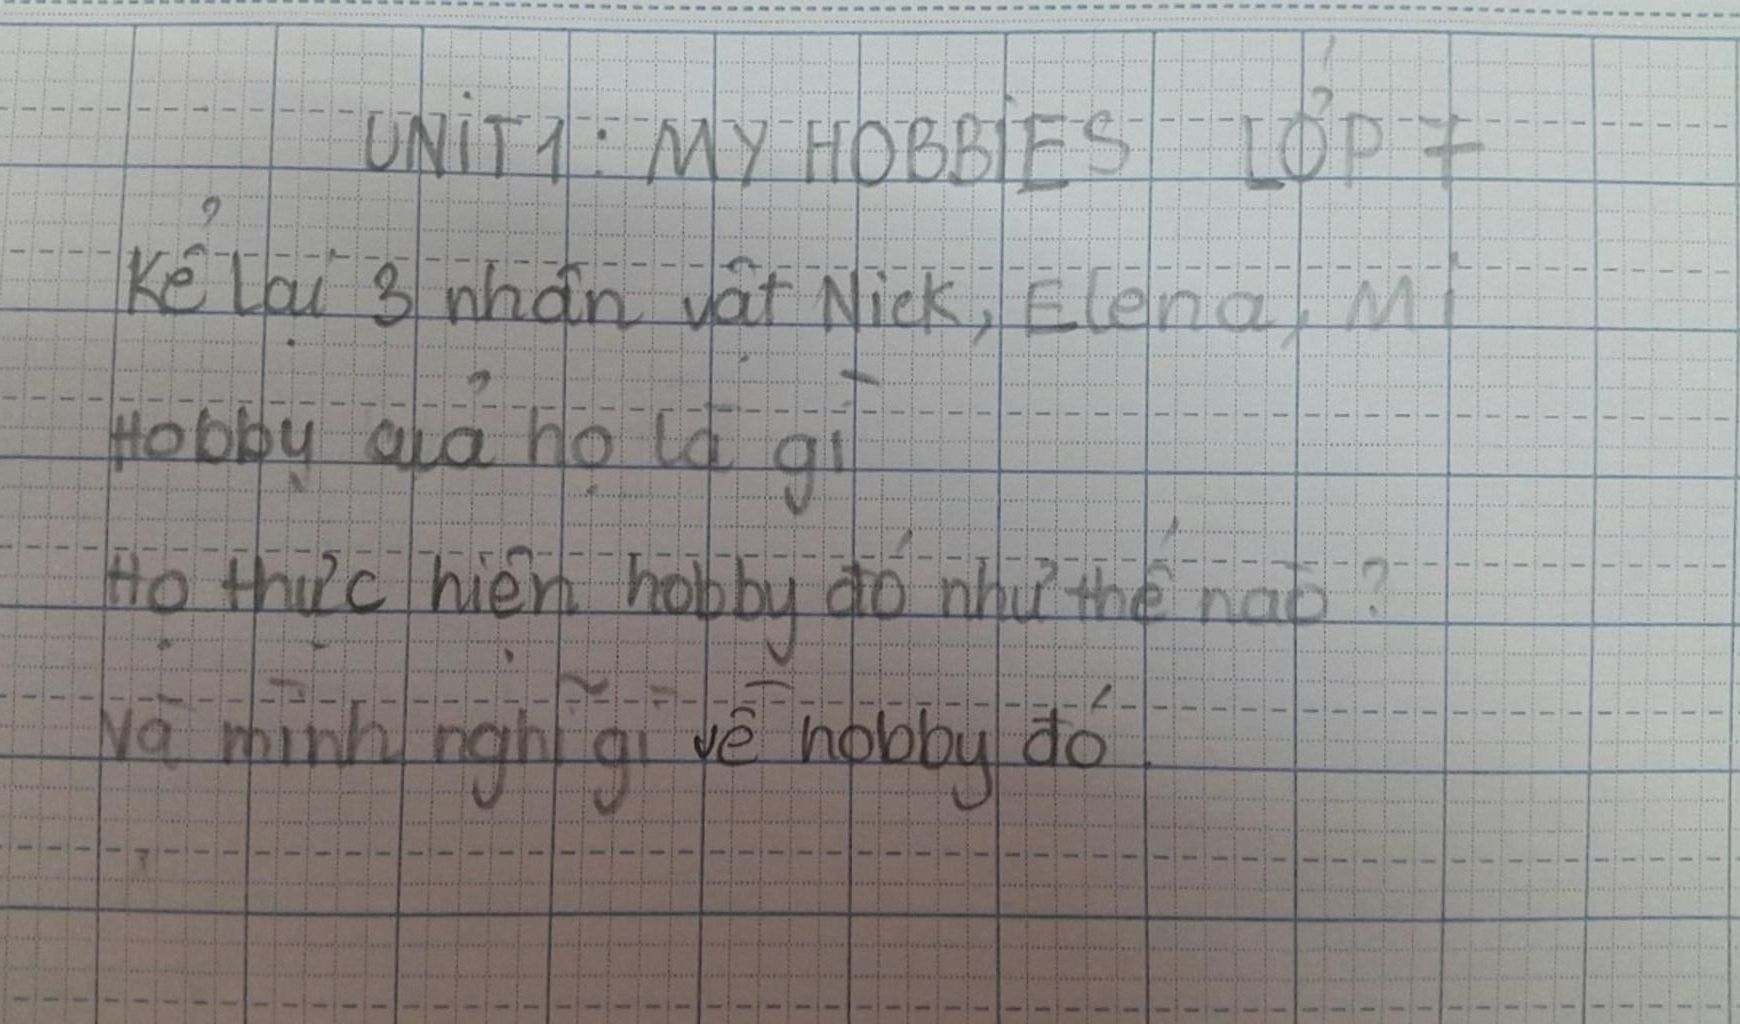 UNIT 1: MY HOBBIES LỚP 7
Kể lại 3 nhân vật Nick, Elena, Mi
Hobby của họ là gì
Họ thực hiện hobby đó như thế nào?
Và mình nghĩ gì về hobby đó.